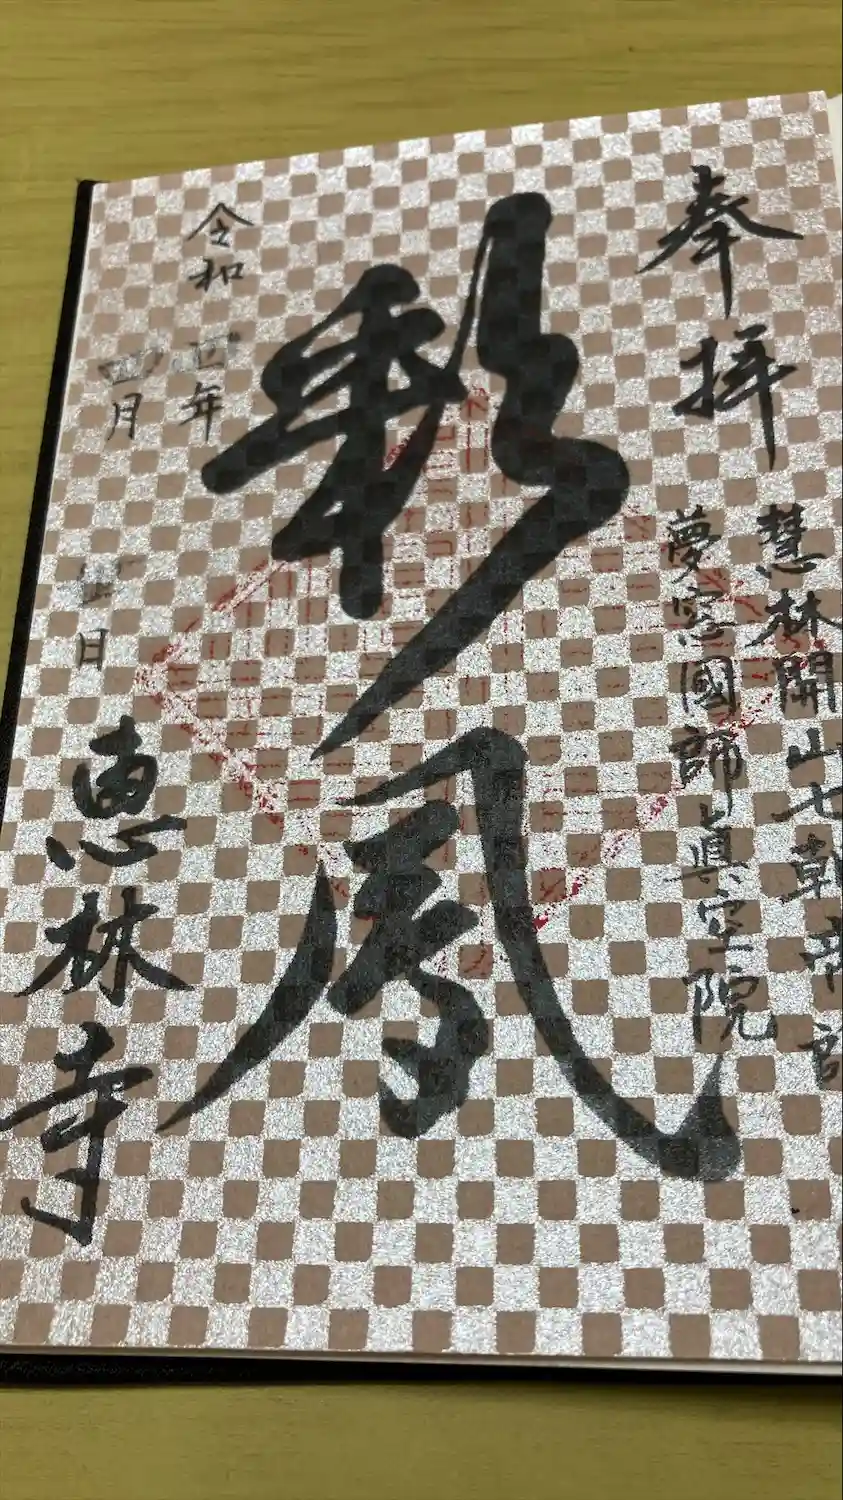 奉拝
慧林開山七朝帝師
夢窓國師眞空院
彩鳳
令和四年
四月
日
恵林寺